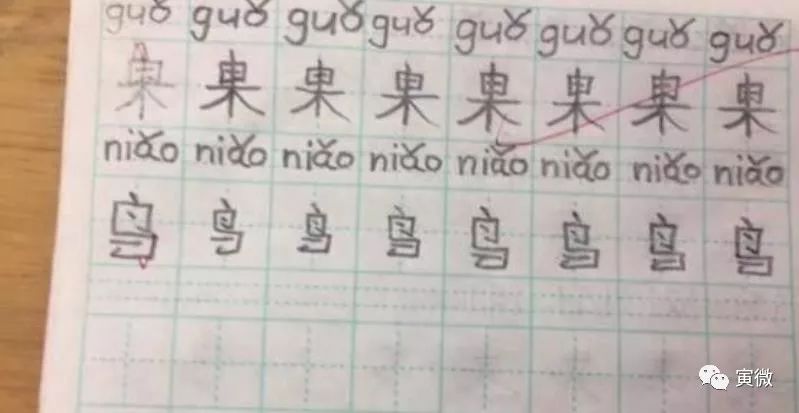 guǒ guǒ guǒ guǒ guǒ guǒ guǒ guǒ
果 果 果 果 果 果 果 果
niǎo niǎo niǎo niǎo niǎo niǎo niǎo niǎo
鸟 鸟 鸟 鸟 鸟 鸟 鸟 鸟
寅微